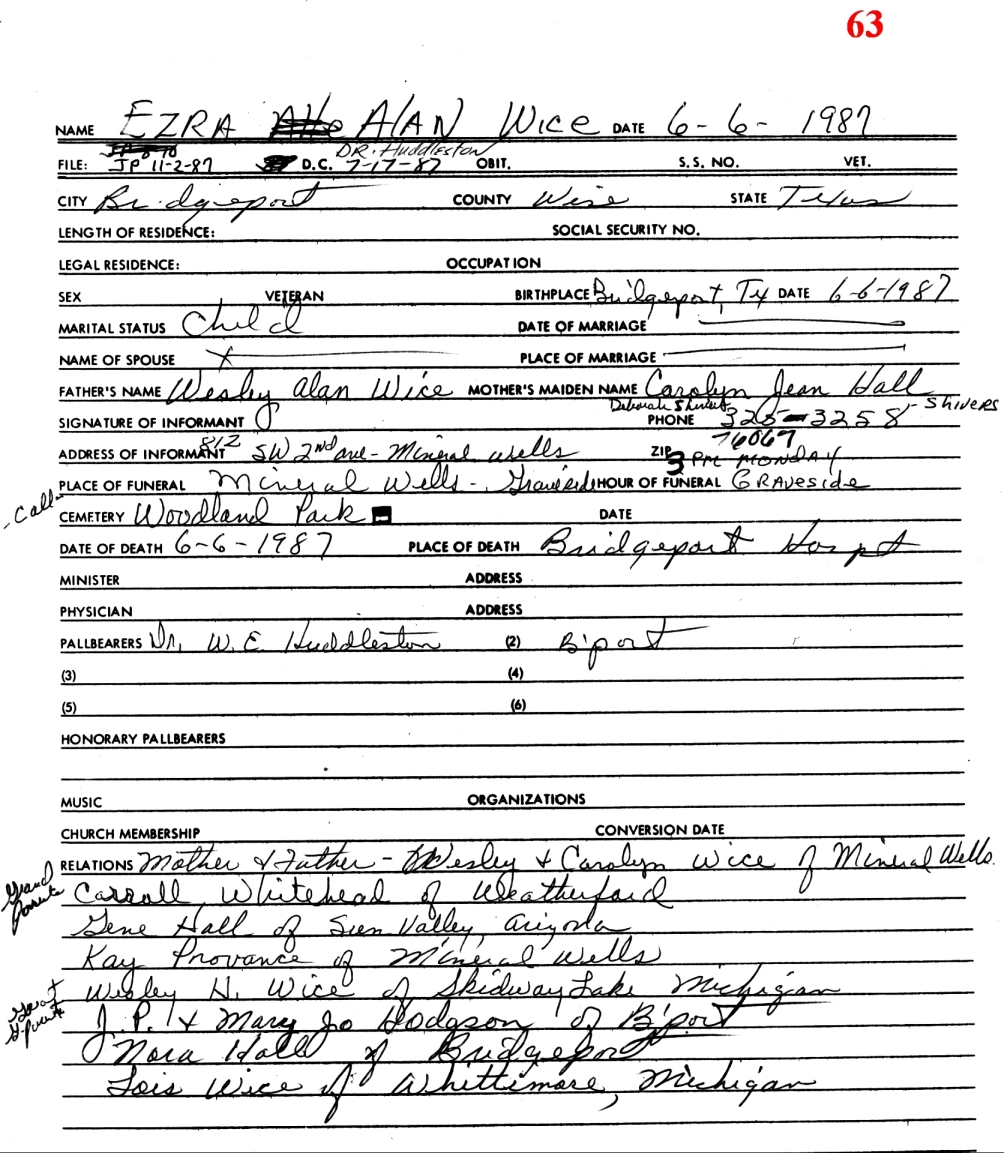 63
NAME EZRA ALAN WICE DATE 6-6-1987
DR. Huddleston
FILE: JP 11-2-87 D.C. 7-17-87 OBIT. S.S. NO. VET.
CITY Bridgeport COUNTY Wise STATE Texas
LENGTH OF RESIDENCE: SOCIAL SECURITY NO.
LEGAL RESIDENCE: OCCUPATION
SEX VETERAN BIRTHPLACE Bridgeport, Tx DATE 6-6-1987
MARITAL STATUS Child DATE OF MARRIAGE
NAME OF SPOUSE PLACE OF MARRIAGE
FATHER'S NAME Wesley Alan Wice MOTHER'S MAIDEN NAME Carolyn Jean Hall
Deborah Shivers
SIGNATURE OF INFORMANT PHONE 325-3258 - SHIVERS
ADDRESS OF INFORMANT 812 SW 2nd ave - Mineral Wells ZIP 76067
3 PM MONDAY
PLACE OF FUNERAL Mineral Wells - Graveside HOUR OF FUNERAL GRAVESIDE
Call
CEMETERY Woodland Park DATE
DATE OF DEATH 6-6-1987 PLACE OF DEATH Bridgeport Hospt
MINISTER ADDRESS
PHYSICIAN ADDRESS
PALLBEARERS Dr. W.E. Huddleston (2) B'port
(3) (4)
(5) (6)
HONORARY PALLBEARERS
MUSIC ORGANIZATIONS
CHURCH MEMBERSHIP CONVERSION DATE
RELATIONS Mother & Father - Wesley & Carolyn Wice of Mineral Wells.
Grand parents Carroll Whitehead of Weatherford
Gene Hall of Sun Valley, Arizona
Kay Provance of Mineral Wells
Wesley H. Wice of Skidway Lake Michigan
Great G-parents J. P. & Mary Jo Hodgson of B'port
Nora Hall of Bridgeport
Lois Wice of Whittimore, Michigan